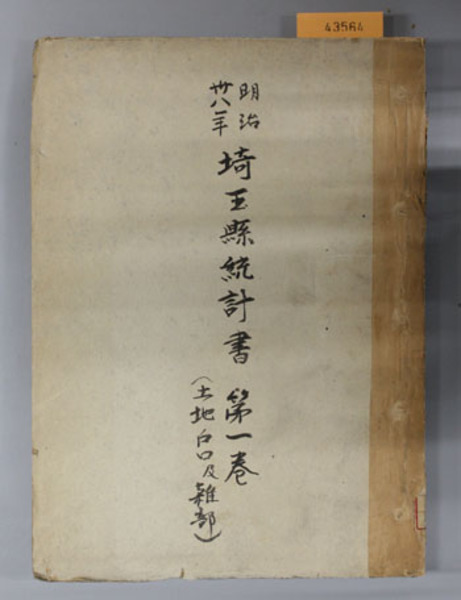 43564
明治
卅八年
埼玉縣統計書 第一巻
(土地戸口及雜部)